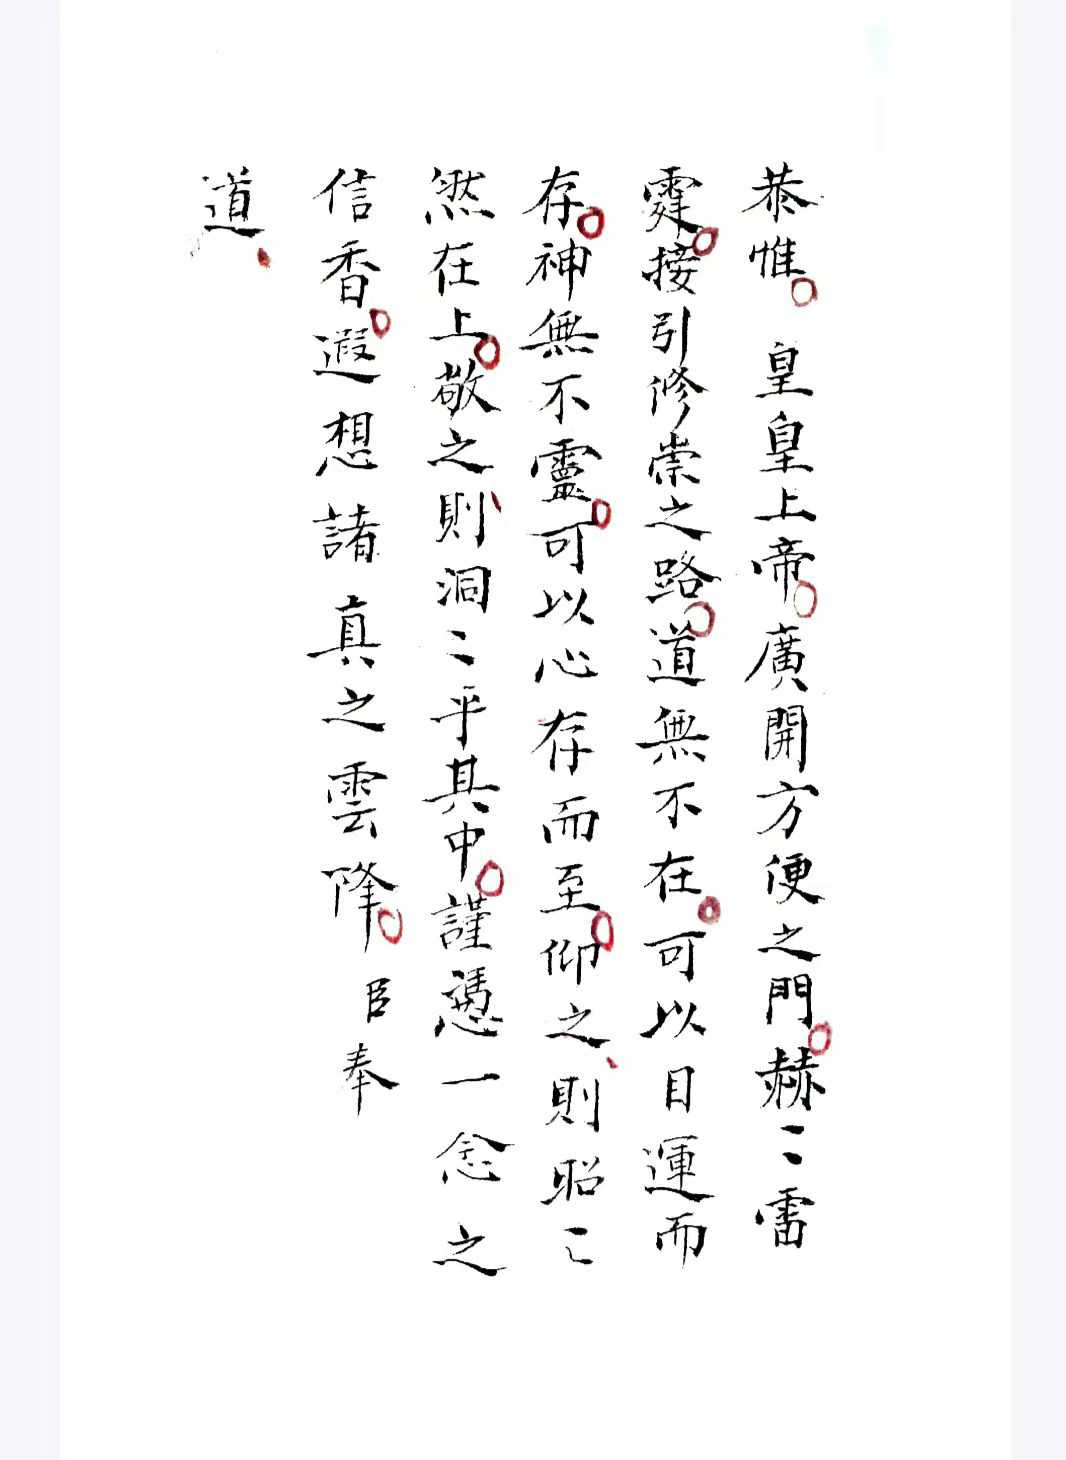 恭惟。皇皇上帝。廣開方便之門。赫〻雷
霆。接引修崇之路。道無不在。可以目運而
存。神無不靈。可以心存而至。仰之、則昭〻
然在上。敬之、則洞〻乎其中。謹憑一念之
信香。遐想諸真之雲降。臣奉
道、